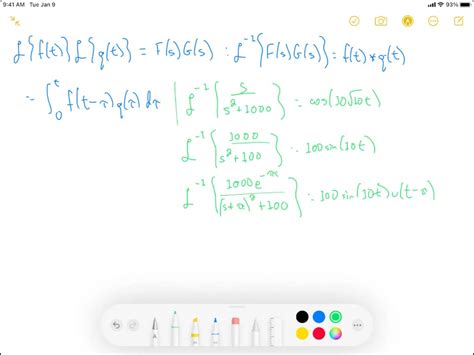 9:41 AM Tue Jan 9 93%
ℒ{f(t)}ℒ{g(t)} = F(s)G(s) : ℒ⁻¹{F(s)G(s)} = f(t)*g(t)
= ∫₀ᵗ f(t-π)g(π)dπ | ℒ⁻¹{s/(s²+1000)} = cos(10√10t)
ℒ⁻¹{1000/(s²+100)} = 100sin(10t)
ℒ⁻¹{1000e^(-πs)/((s+π)²+100)} = 100sin(10t)u(t-π)